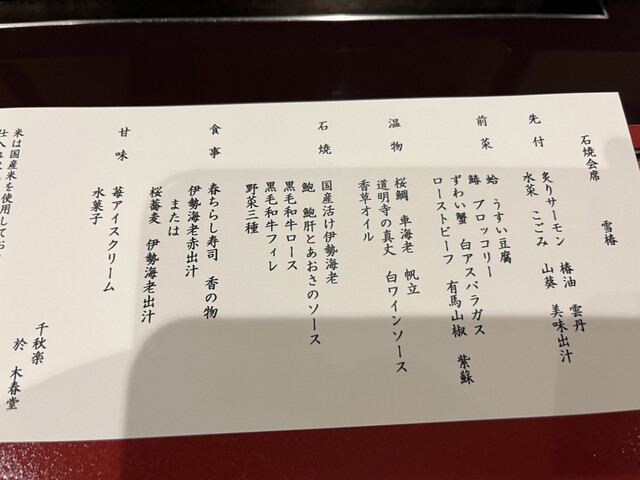 石焼会席
雪椿
先付
炙りサーモン 椿油 雲丹
水菜 こごみ 山葵 美味出汁
前菜
蛤 うすい豆腐
鰆 ブロッコリー
ずわい蟹 白アスパラガス
ローストビーフ 有馬山椒 紫蘇
温物
桜鯛 車海老 帆立
道明寺の真丈 白ワインソース
香草オイル
石焼
国産活け伊勢海老
鮑 鮑肝とあおさのソース
黒毛和牛ロース
黒毛和牛フィレ
野菜三種
食事
春ちらし寿司 香の物
伊勢海老赤出汁
または
桜蕎麦 伊勢海老出汁
甘味
苺アイスクリーム
水菓子
千秋楽
於 木春堂
米は国産米を使用してお